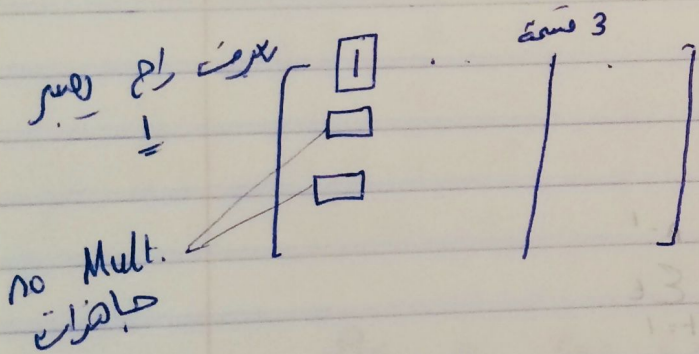 3 قسمة
بعرف راح يصير
1
1
no Mult.
جاهزات